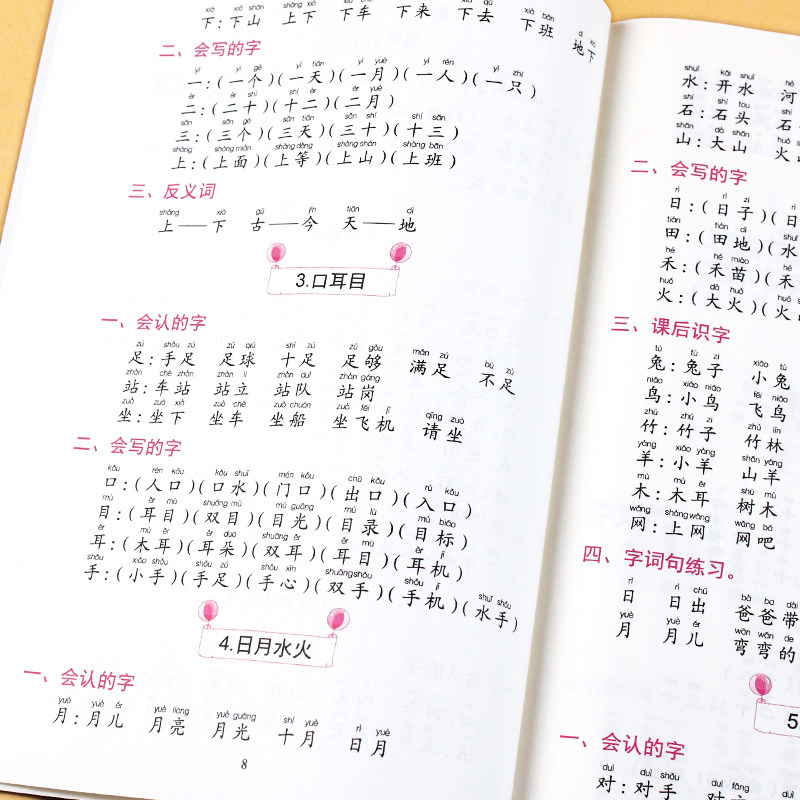 xià xià shān shàng xià xià chē xià lái xià qù xià bān dì xià
下：下山 上下 下车 下来 下去 下班 地下
二、会写的字
yī yí gè yì tiān yí yuè yì rén yì zhī
一：（一个）（一天）（一月）（一人）（一只）
èr èr shí shí èr èr yuè
二：（二十）（十二）（二月）
sān sān gè sān tiān sān shí shí sān
三：（三个）（三天）（三十）（十三）
shàng shàng miàn shàng děng shàng shān shàng bān
上：（上面）（上等）（上山）（上班）
三、反义词
shàng xià gǔ jīn tiān dì
上——下 古——今 天——地
3.口耳目
一、会认的字
zú shǒu zú zú qiú shí zú zú gòu mǎn zú bù zú
足：手足 足球 十足 足够 满足 不足
zhàn chē zhàn zhàn lì zhàn duì zhàn gǎng
站：车站 站立 站队 站岗
zuò zuò xià zuò chē zuò chuán zuò fēi jī qǐng zuò
坐：坐下 坐车 坐船 坐飞机 请坐
二、会写的字
kǒu rén kǒu kǒu shuǐ mén kǒu chū kǒu rù kǒu
口：（人口）（口水）（门口）（出口）（入口）
mù ěr mù shuāng mù mù guāng mù lù mù biāo
目：（耳目）（双目）（目光）（目录）（目标）
ěr mù ěr ěr duǒ shuāng ěr ěr mù ěr jī
耳：（木耳）（耳朵）（双耳）（耳目）（耳机）
shǒu xiǎo shǒu shǒu zú shǒu xīn shuāng shǒu shǒu jī shuǐ shǒu
手：（小手）（手足）（手心）（双手）（手机）（水手）
4.日月水火
一、会认的字
yuè yuè ér yuè liang yuè guāng shí yuè rì yuè
月：月儿 月亮 月光 十月 日月
8
shuǐ kāi shuǐ hé
水：开水 河
shí shí tou shí
石：石头 石
shān dà shān huǒ
山：大山 火
二、会写的字
rì rì zi rì
日：（日子）（日
tián tián dì shuǐ
田：（田地）（水
hé hé miáo hé
禾：（禾苗）（禾
huǒ dà huǒ huǒ
火：（大火）（火
三、课后识字
tù tù zi xiǎo tù
兔：兔子 小兔
niǎo xiǎo niǎo fēi niǎo
鸟：小鸟 飞鸟
zhú zhú zi zhú lín
竹：竹子 竹林
yáng xiǎo yáng shān yáng
羊：小羊 山羊
mù mù ěr shù mù
木：木耳 树木
wǎng shàng wǎng wǎng bā
网：上网 网吧
四、字词句练习。
rì rì chū bà ba dài
日 日出 爸爸带
yuè yuè ér wān wān de
月 月儿 弯弯的
5.
一、会认的字
duì duì shǒu duì fāng
对：对手 对方